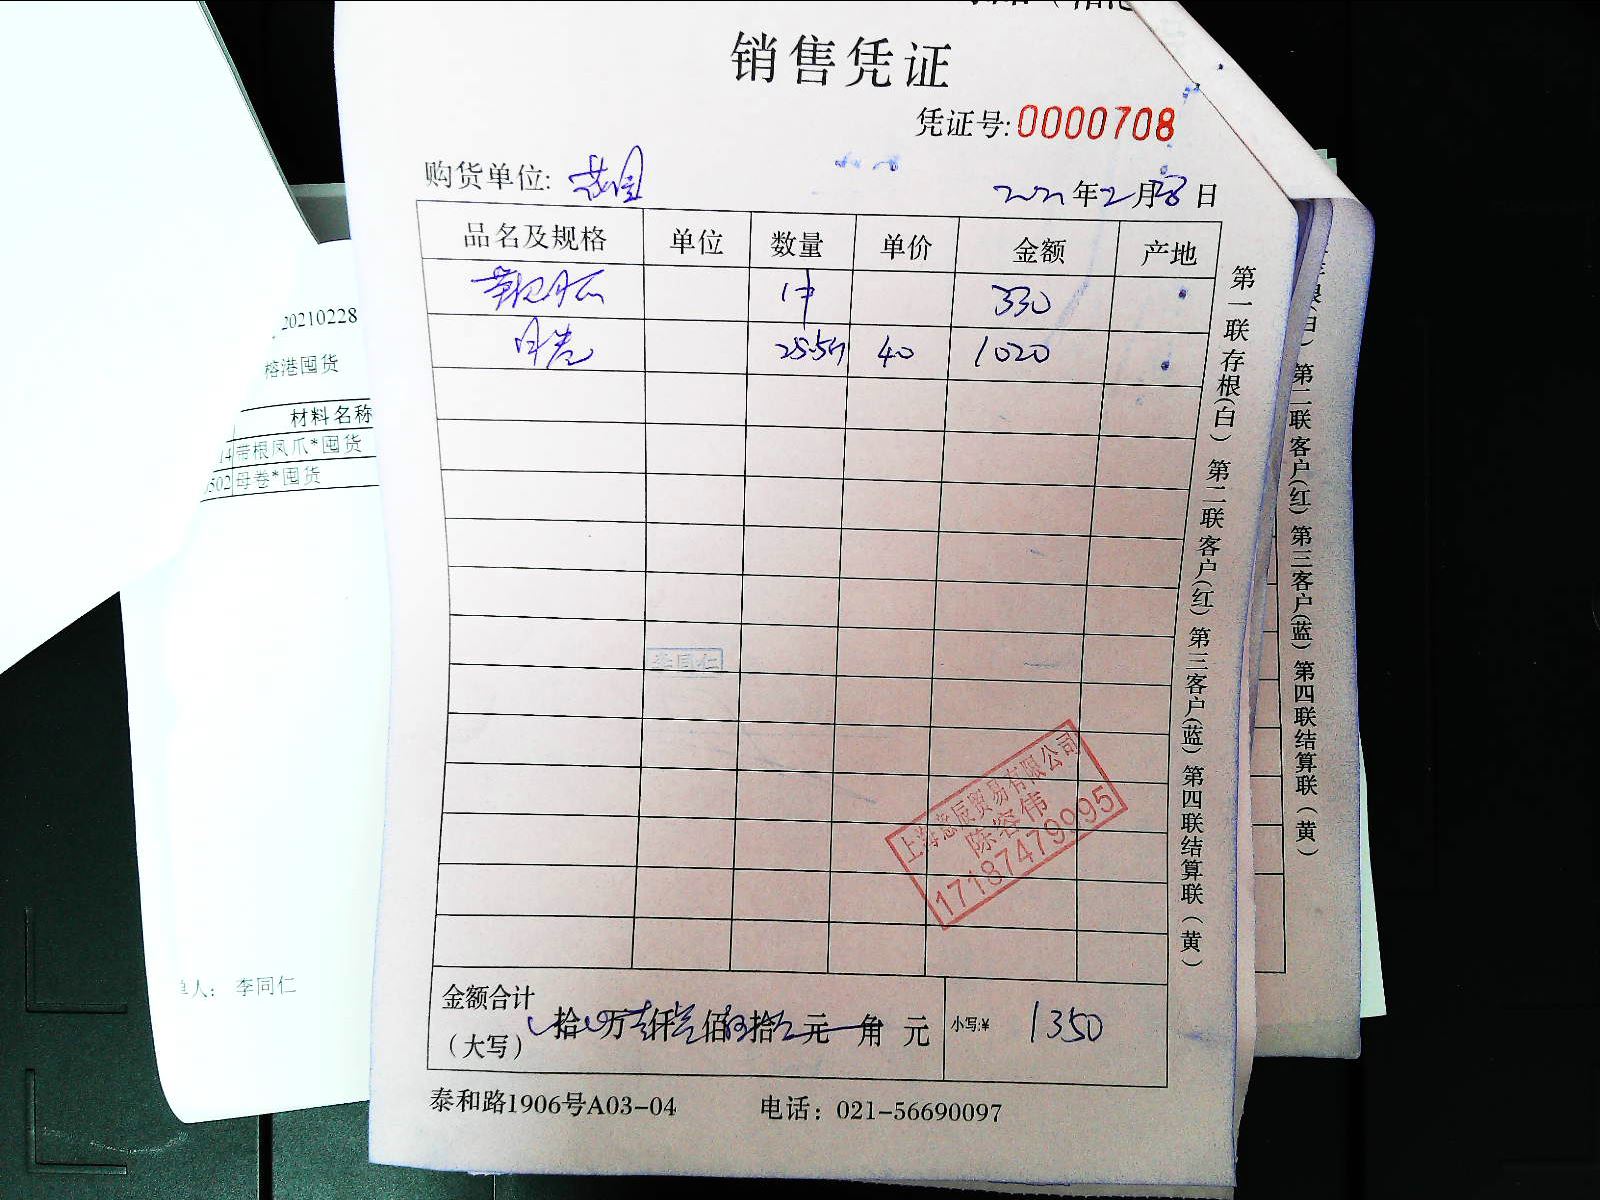 销售凭证
凭证号:0000708
购货单位:
2021年2月28日
品名及规格 单位 数量 单价 金额 产地
1件 330
母卷 25.5斤 40 1020
李同仁
上海 辰贸易有限公司
陈容伟
17187479995
金额合计
(大写) 拾 万 仟 佰 拾 元 角 元 小写:¥ 1350
泰和路1906号A03-04 电话：021-56690097
第一联存根(白) 第二联客户(红) 第三客户(蓝) 第四联结算联(黄)
第二联客户(红) 第三客户(蓝) 第四联结算联(黄)
20210228
榕港囤货
材料名称
14 带根凤爪*囤货
502 母卷*囤货
单人： 李同仁